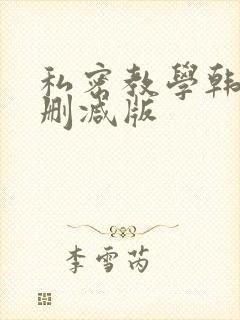 私密教學韩
删减版
李雪芮